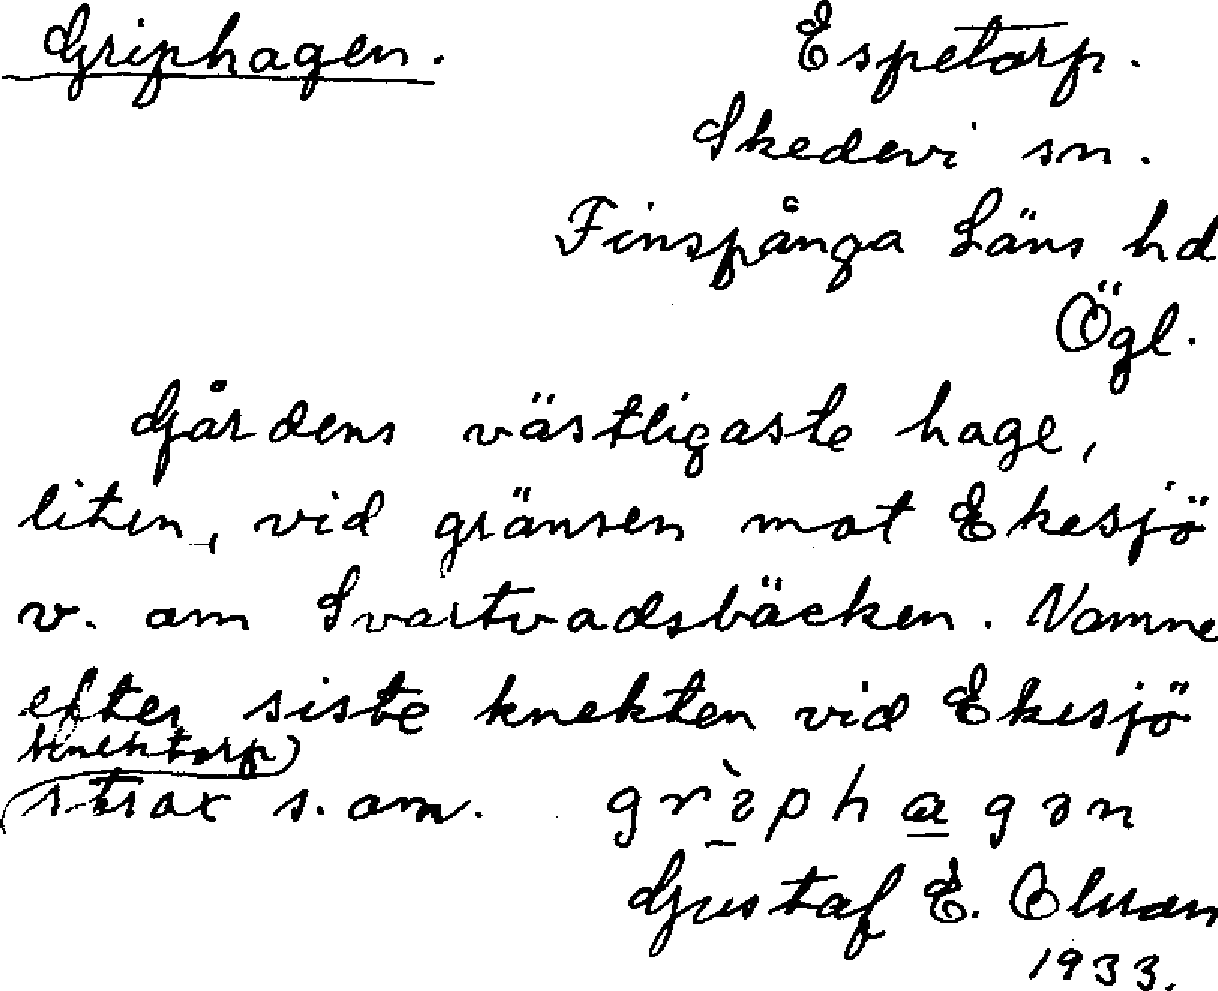 Griphagen. Espetorp.
Skedevi sn.
Finspånga Läns hd
Ögl.
Gårdens västligaste hage,
liten, vid gränsen mot Ekesjö
v. om Svartvadsbäcken. Namne
efter siste knekten vid Ekesjö
knektorp
strax s. om. grìphagən
Gustaf E. Olsson
1933.